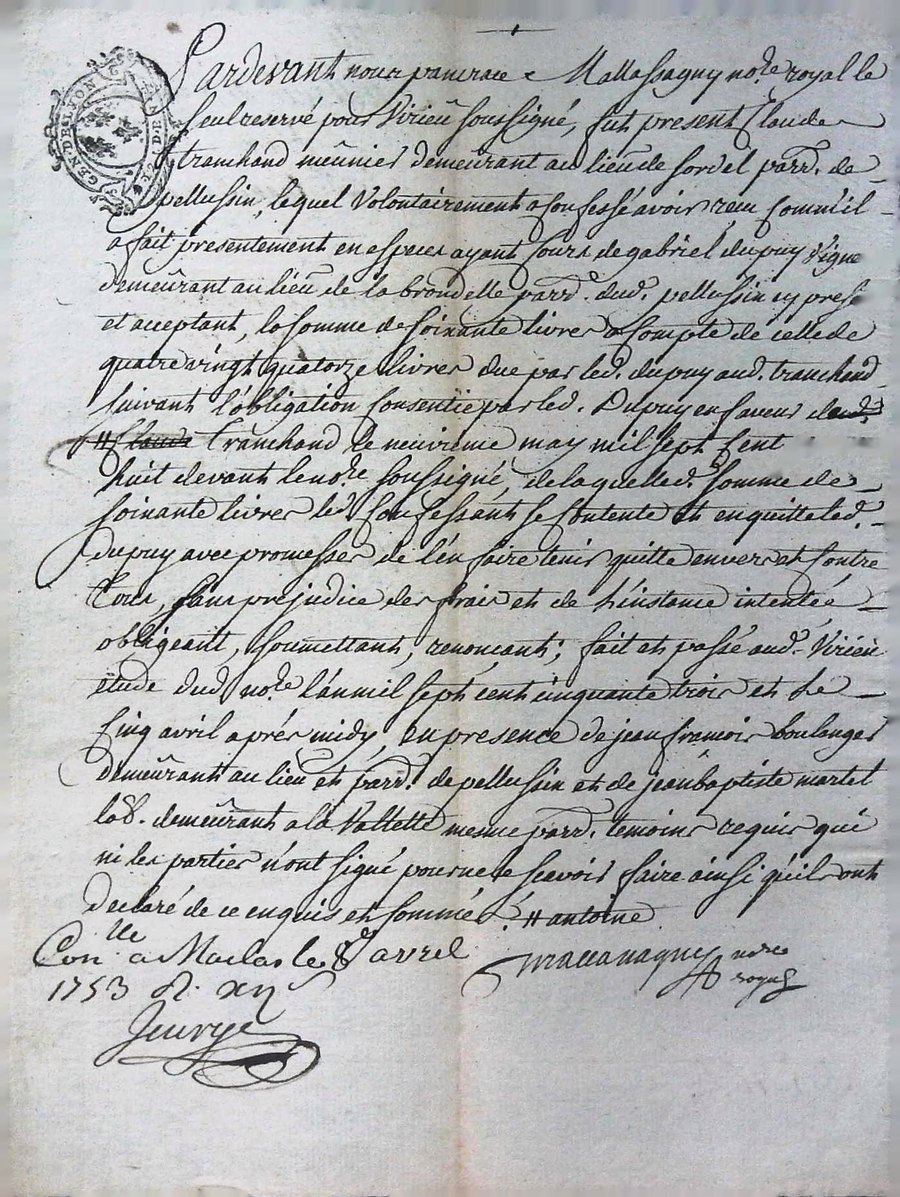 GEN. DE LYON
Pardevant nous pancrace Mallassagny no.re royal le
seul reservé pour Virieu soussigné, fut present Claude
tranchand meûnier demeûrant au lieu de sordel parr. de
pellussin, lequel Volontairement a confessé avoir reçu comme il
a fait presentement en especes ayant cours de gabriel dupuy Vigne
demeûrant au lieû de la brondelle parr. dud. pellussin cy prest
et acceptant, la somme de soixante livres a compte de celle de
quatre vingt quatorze livres due par led. dupuy aud. tranchand
suivant l'obligation consentïe par led. Dupuy en faveur de
# Claude tranchand le neuvieme may mil sept cent
huit devant le no.re soussigné, de laquelle d. somme de
soixante livres led. confessant se contente et en quitte led.
dupuy avec promesses de l'en faire tenir quitte envers et contre
tous, sans prejudice des frais et de l'instance intentée
obligeant, soumettant, renonçant; fait et passé aud. Virieû
etude dud. no.re l'an mil sept cent cinquante trois et le
cinq avril après midy, en presence de jean françois boulanger
demeûrant au lieu et parr. de pellussin et de jean baptiste martel
lab. demeûrant a la Valtette meme parr. temoins requis qui
ni les parties n'ont signé pour ne le scavoir faire ainsi qu'ils ont
declaré de ce enquis et sommé. # antoine
Con.lle a Maclas le 8e avril
1753 R. xn s
notre
royal